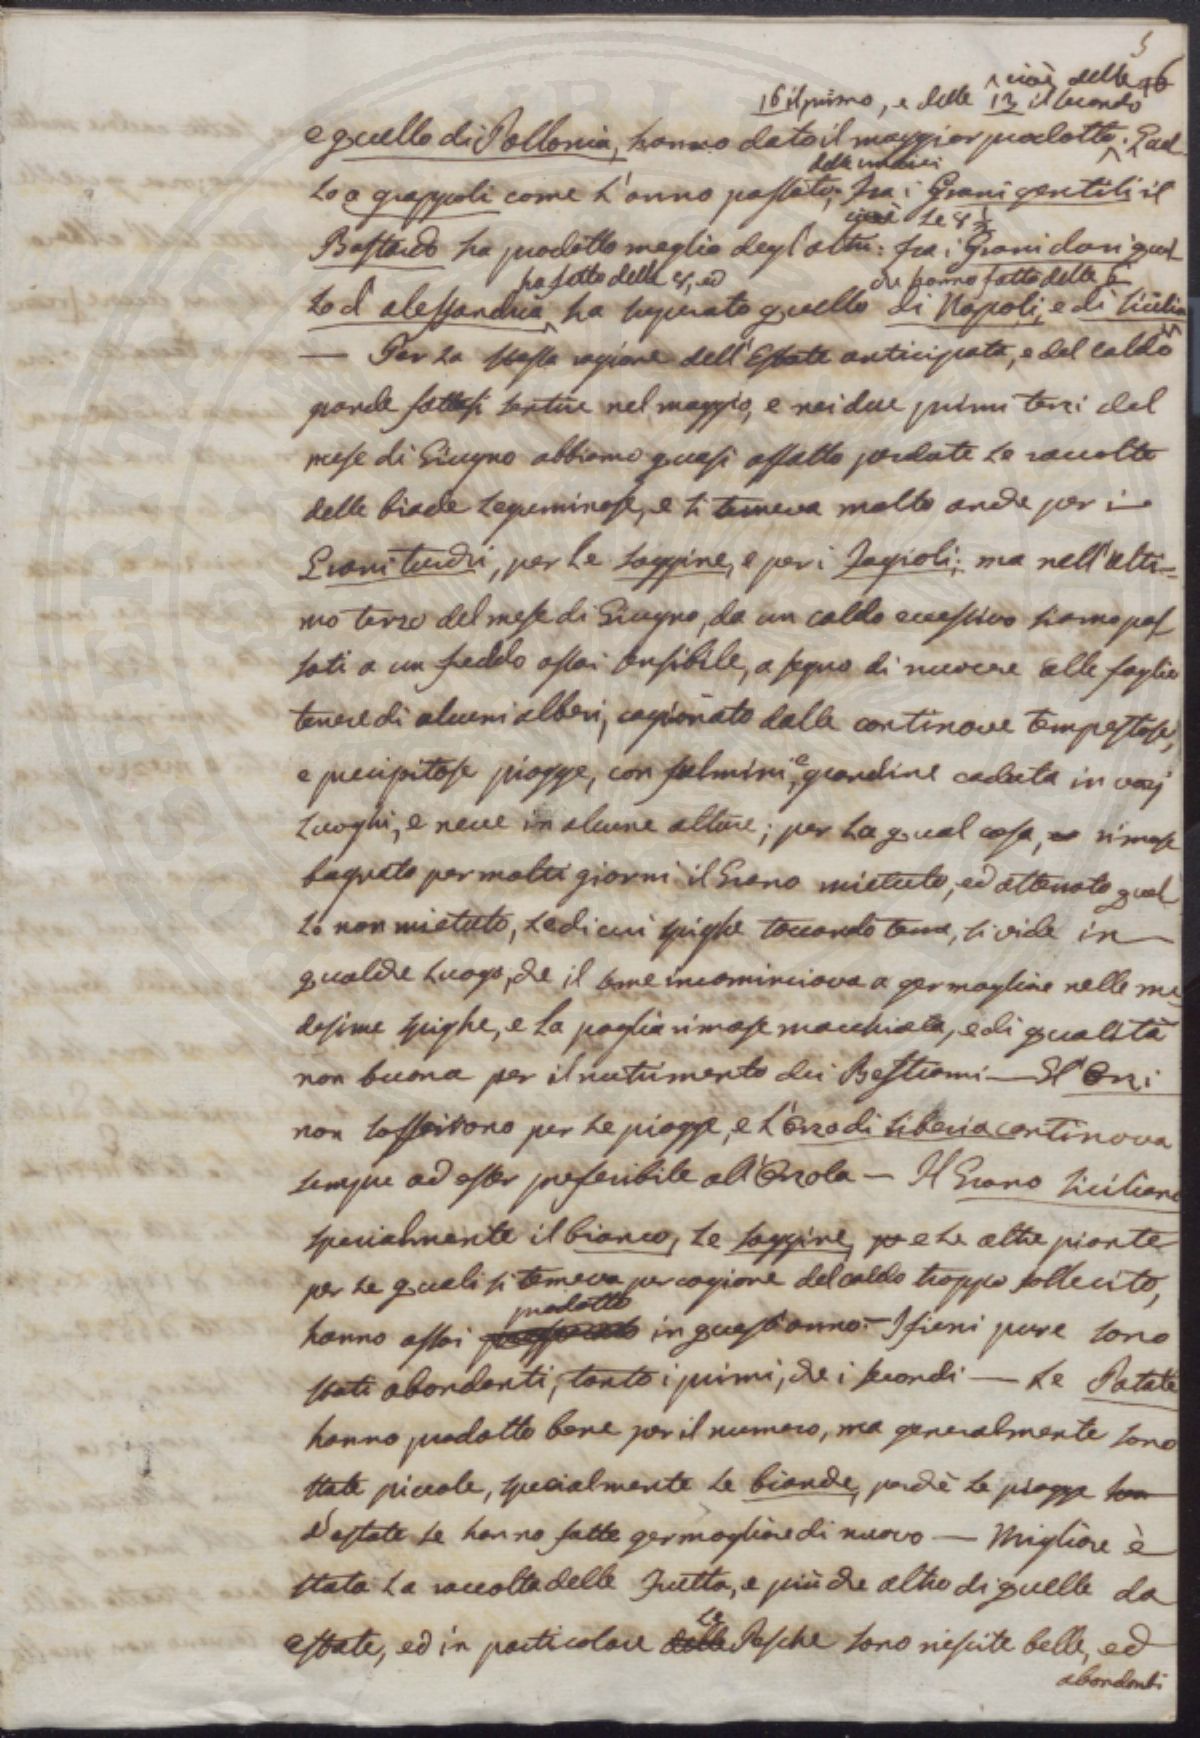 5
cioè delle 16
16 il primo, e delle 12 il secondo
e quello di Pollonia, hanno dato il maggior prodotto. Quel
lo a grappoli come l'anno passato; fra i Grani gentili il
cioè le 8 ½
Bastardo ha prodotto meglio degl'altri: fra i Grani duri quel
ha fatto delle 8, ed che hanno fatto delle 6
lo d'alessandria, ha superato quello di Napoli, e di Sicilia
— Per la stessa ragione dell'Estate anticipata, e del caldo
grande fattosi sentire nel maggio, e nei due primi terzi del
mese di Giugno abbiamo quasi affatto perdute le raccolte
delle biade leguminose, e si temeva molto anche per i
Grani turchi, per le saggine, e per i Fagioli; ma nell'ulti-
mo terzo del mese di Giugno, da un caldo eccessivo siamo pas
sati a un freddo assai sensibile, a segno di nuocere alle foglie
tenere di alcuni alberi, cagionato dalle continove tempestose,
e precipitose piogge, con fulmini, e grandine caduta in varj
luoghi, e neve in alcune alture; per la qual cosa, rimase
bagnato per molti giorni il Grano mietuto, ed atterrato quel
lo non mietuto, le di cui spighe toccando terra, si vide in
qualche luogo, che il seme incominciava a germogliare nelle me
desime spighe, e la paglia rimase macchiata, e di qualità
non buona per il nutrimento dei Bestiami — Gl'Orzi
non soffrirono per le piogge, e l'Orzo di Siberia continova
sempre ad esser preferibile all'Orzola — Il Grano Siciliano
specialmente il bianco, le saggine, e le altre piante
per le quali si temeva per cagione del caldo troppo sollecito,
prodotto
hanno assai in quest'anno. — I fieni pure sono
stati abondanti, tanto i primi, che i secondi — Le Patate
hanno prodotto bene per il numero, ma generalmente sono
state piccole, specialmente le bianche, perchè le piogge
d'estate le hanno fatte germogliare di nuovo — Migliore è
stata la raccolta delle Frutta, e più che altro di quelle da
estate, ed in particolare le Pesche sono riescite belle, ed
abondanti